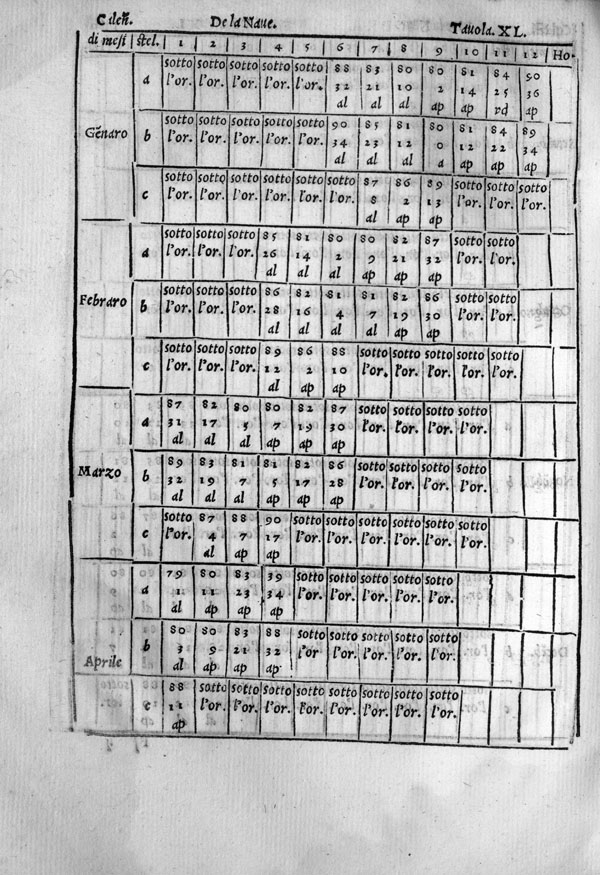 C deñ. De la Naue. Tauola. XL.
di mesi stel. 1 2 3 4 5 6 7 8 9 10 11 12 Ho.
sotto sotto sotto sotto sotto 88 83 80 80 81 84 90
a l'or. l'or. l'or. l'or. l'or. 32 21 10 2 14 25 36
al al al ap ap rd ap
sotto sotto sotto sotto sotto 90 85 81 80 81 84 89
Gẽnaro b l'or. l'or. l'or. l'or. l'or. 34 23 12 0 12 22 34
al al al a ap ap ap
sotto sotto sotto sotto sotto sotto 87 86 89 sotto sotto sotto
c l'or. l'or. l'or. l'or. l'or. l'or. 8 2 13 l'or. l'or. l'or.
al ap ap
sotto sotto sotto 85 81 80 80 82 87 sotto sotto
a l'or. l'or. l'or. 26 14 2 9 21 32 l'or. l'or.
al al al ap ap ap
sotto sotto sotto 86 82 81 81 82 86 sotto sotto
Febraro b l'or. l'or. l'or. 28 16 4 7 19 30 l'or. l'or.
al al al al ap ap
sotto sotto sotto 89 86 88 sotto sotto sotto sotto sotto
c l'or. l'or. l'or. 12 2 10 l'or. l'or. l'or. l'or. l'or.
al ap ap
87 82 80 80 82 87 sotto sotto sotto sotto
a 31 17 5 7 19 30 l'or. l'or. l'or. l'or.
al al al ap ap ap
89 83 81 81 82 86 sotto sotto sotto sotto
Marzo b 32 19 7 5 17 28 l'or. l'or. l'or. l'or.
al al al ap ap ap
sotto 87 88 90 sotto sotto sotto sotto sotto sotto
c l'or. 4 7 17 l'or. l'or. l'or. l'or. l'or. l'or.
al ap ap
79 80 83 39 sotto sotto sotto sotto sotto
a 1 11 23 34 l'or. l'or. l'or. l'or. l'or.
al ap ap ap
80 80 83 88 sotto sotto sotto sotto sotto
b 3 9 21 32 l'or l'or. l'or. l'or. l'or.
Aprile al ap ap ap
88 sotto sotto sotto sotto sotto sotto sotto sotto
c 11 l'or. l'or. l'or. l'or. l'or. l'or. l'or. l'or.
ap